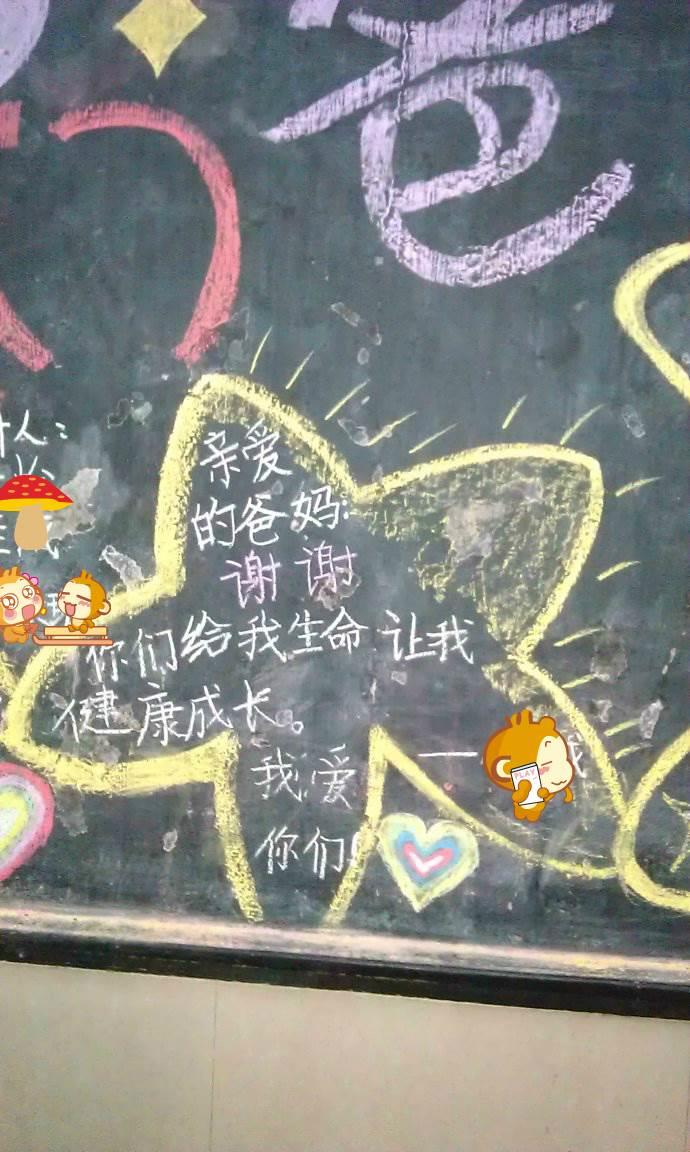 爸
亲爱
的爸妈:
谢谢
你们给我生命 让我
健康成长。
我爱
你们!
人:
PLAY